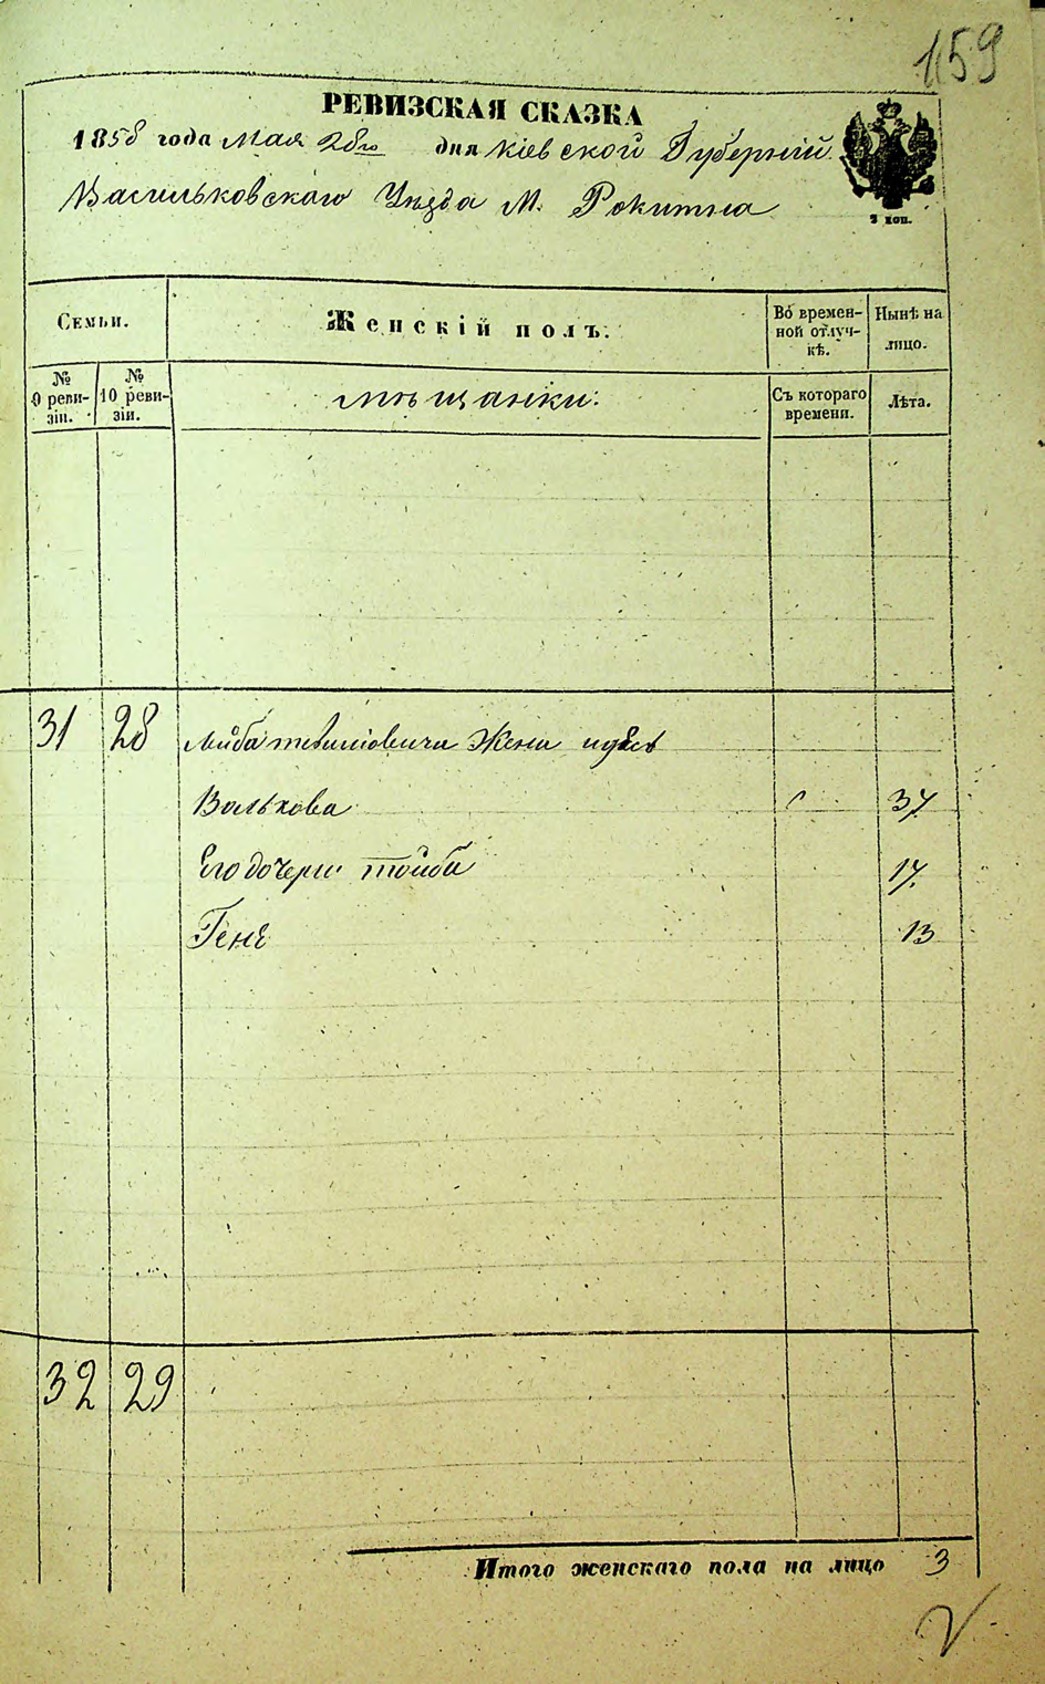 159
РЕВИЗСКАЯ СКАЗКА
1858 года Мая 28го дня Кіевской Губерніи
Васильковскаго Уѣзда М. Рокитна
2 коп.
Семьи.
Женскій полъ.
Во времен-
ной отлуч-
кѣ.
Нынѣ на
лицо.
№
9 реви-
зіи.
№
10 реви-
зіи.
мѣщанки:
Съ котораго
времени.
Лѣта.
31 28 Жена
Волькова 37
Его дочери Тойба 17.
Гене 13
32 29
Итого женскаго пола на лицо 3